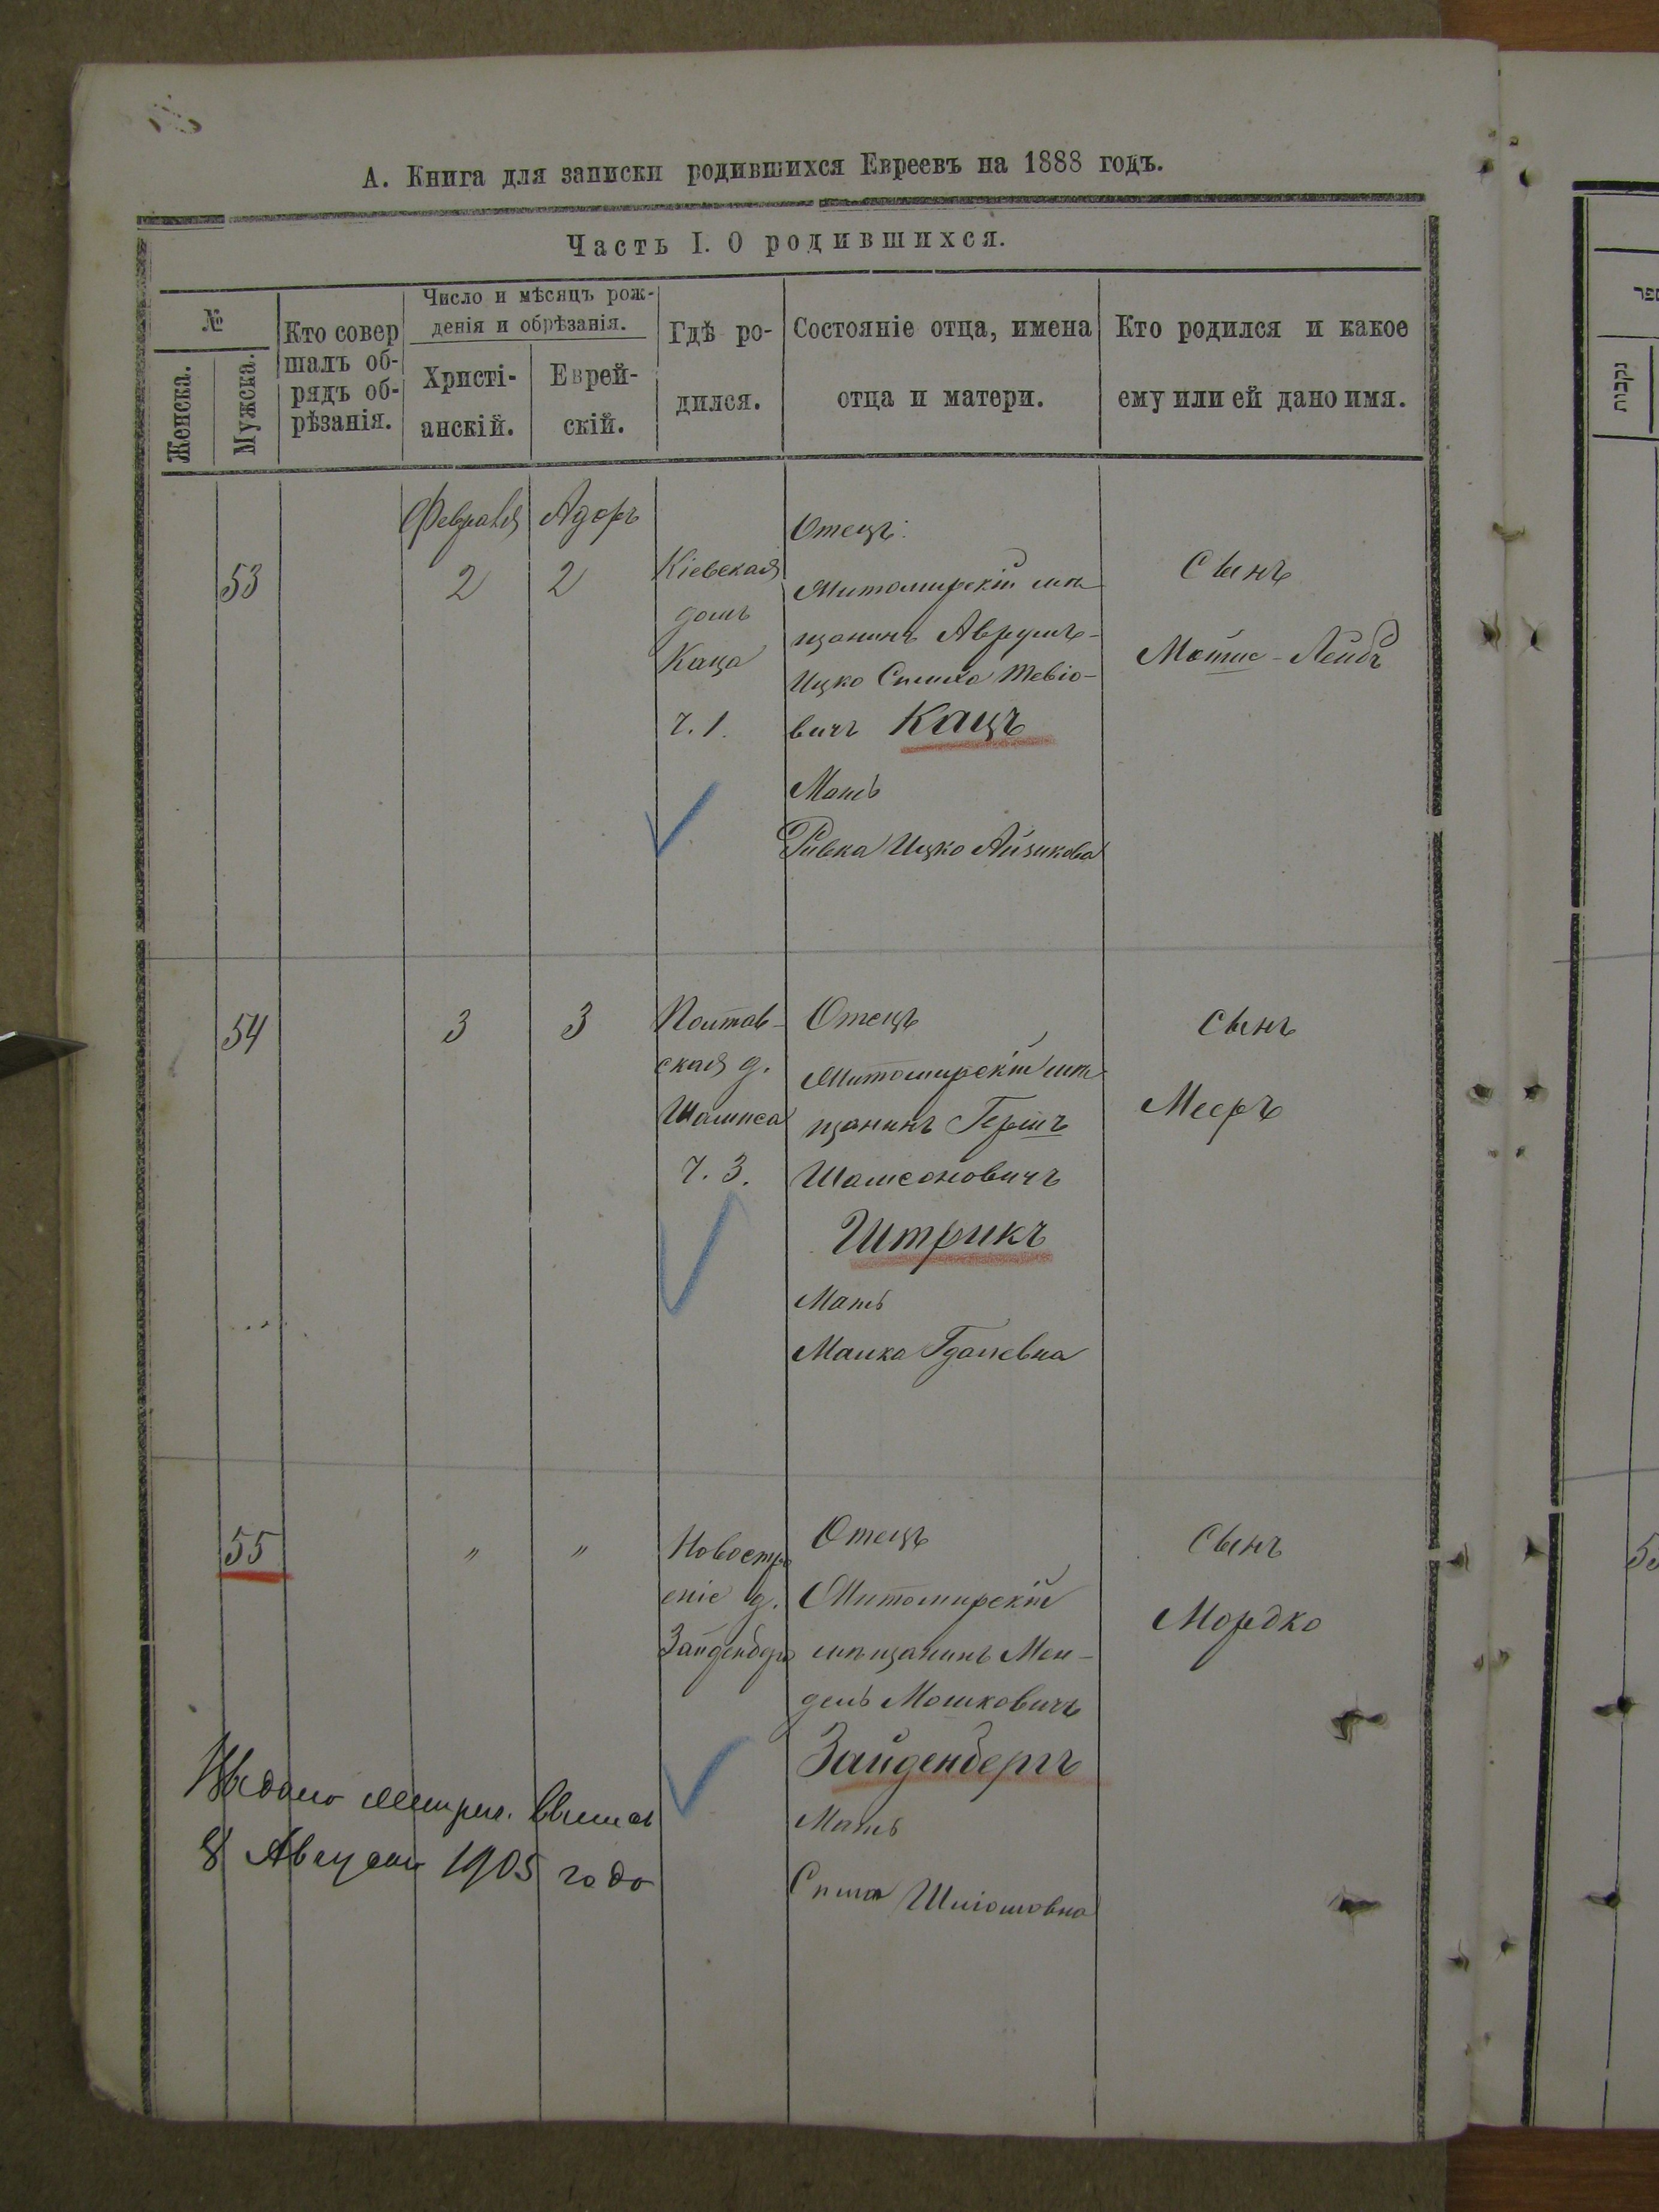 А. Книга для записки родившихся Евреевъ на 1888 годъ.
Часть I. О родившихся.
№
Женска.
Мужска.
Кто совер
шалъ об-
рядъ об-
рѣзанія.
Число и мѣсяцъ рож-
денія и обрѣзанія.
Христі-
анскій.
Еврей-
скій.
Гдѣ ро-
дился.
Состояніе отца, имена
отца и матери.
Кто родился и какое
ему или ей дано имя.
53
Февраля
2
Адоръ
2
Кіевская
домъ
Каца
ч. 1.
Отецъ:
Житомирскій мѣ
щанинъ Аврумъ-
Ицко Симха Тевіо-
вичъ Кацъ
Мать
Ривка Ицко Айзикова
Сынъ
Мотис-Лейбъ
54
3
3
Полтав-
ская д.
ч. 3.
Отецъ
Житомирскій мѣ
щанинъ Гершъ
Шамсоновичъ
Штрикъ
Мать
Малка Гдалевна
Сынъ
Мееръ
55
"
"
Новостро
еніе д.
Зайденберга
Отецъ
Житомирскій
мѣщанинъ Мен-
дель Мошковичъ
Зайденбергъ
Мать
Сынъ
Мордко
Выдана метрич. выпись
8 Августа 1905 года
נקבות